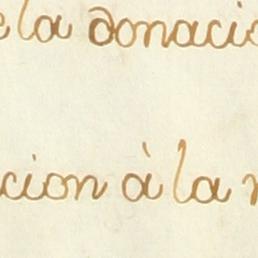 e la donacio
cion à la